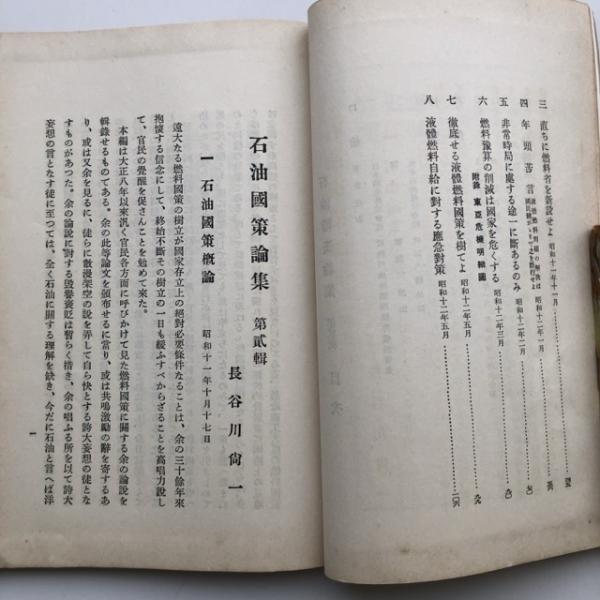 三 直ちに燃料省を新設せよ 昭和十一年十一月
四 年頭苦言 昭和十二年一月
五 非常時局に處する途一に斷あるのみ 昭和十二年二月
六 燃料豫算の削減は國家を危くする 昭和十二年三月
附錄 東亞危機明細圖
七 徹底せる液體燃料國策を樹てよ 昭和十二年五月
八 液體燃料自給に對する應急對策 昭和十二年五月
石油國策論集 第貳輯
長谷川尙一
一 石油國策概論
昭和十一年十月十七日
遠大なる燃料國策の樹立が國家存立上の絕對必要條件なることは、余の三十餘年來
抱懷する信念にして、終始不斷その樹立の一日も緩ふすべからざることを高唱力說し
て、官民の覺醒を促さんことを勉めて來た。
本編は大正八年以來汎く官民各方面に呼びかけて見た燃料國策に關する余の論說を
輯錄せるものである。余の此等論文を頒布せるに當り、或は共鳴激勵の辭を寄するあ
り、或は又余を見るに、徒らに散漫架空の說を弄して自ら快とする誇大妄想の徒とな
すものがあつた。余の論說に對する毀譽褒貶は暫らく措き、余の唱ふる所を以て誇大
妄想の言となす徒に至つては、全く石油に關する理解を缺き、今だに石油と言へば洋
一